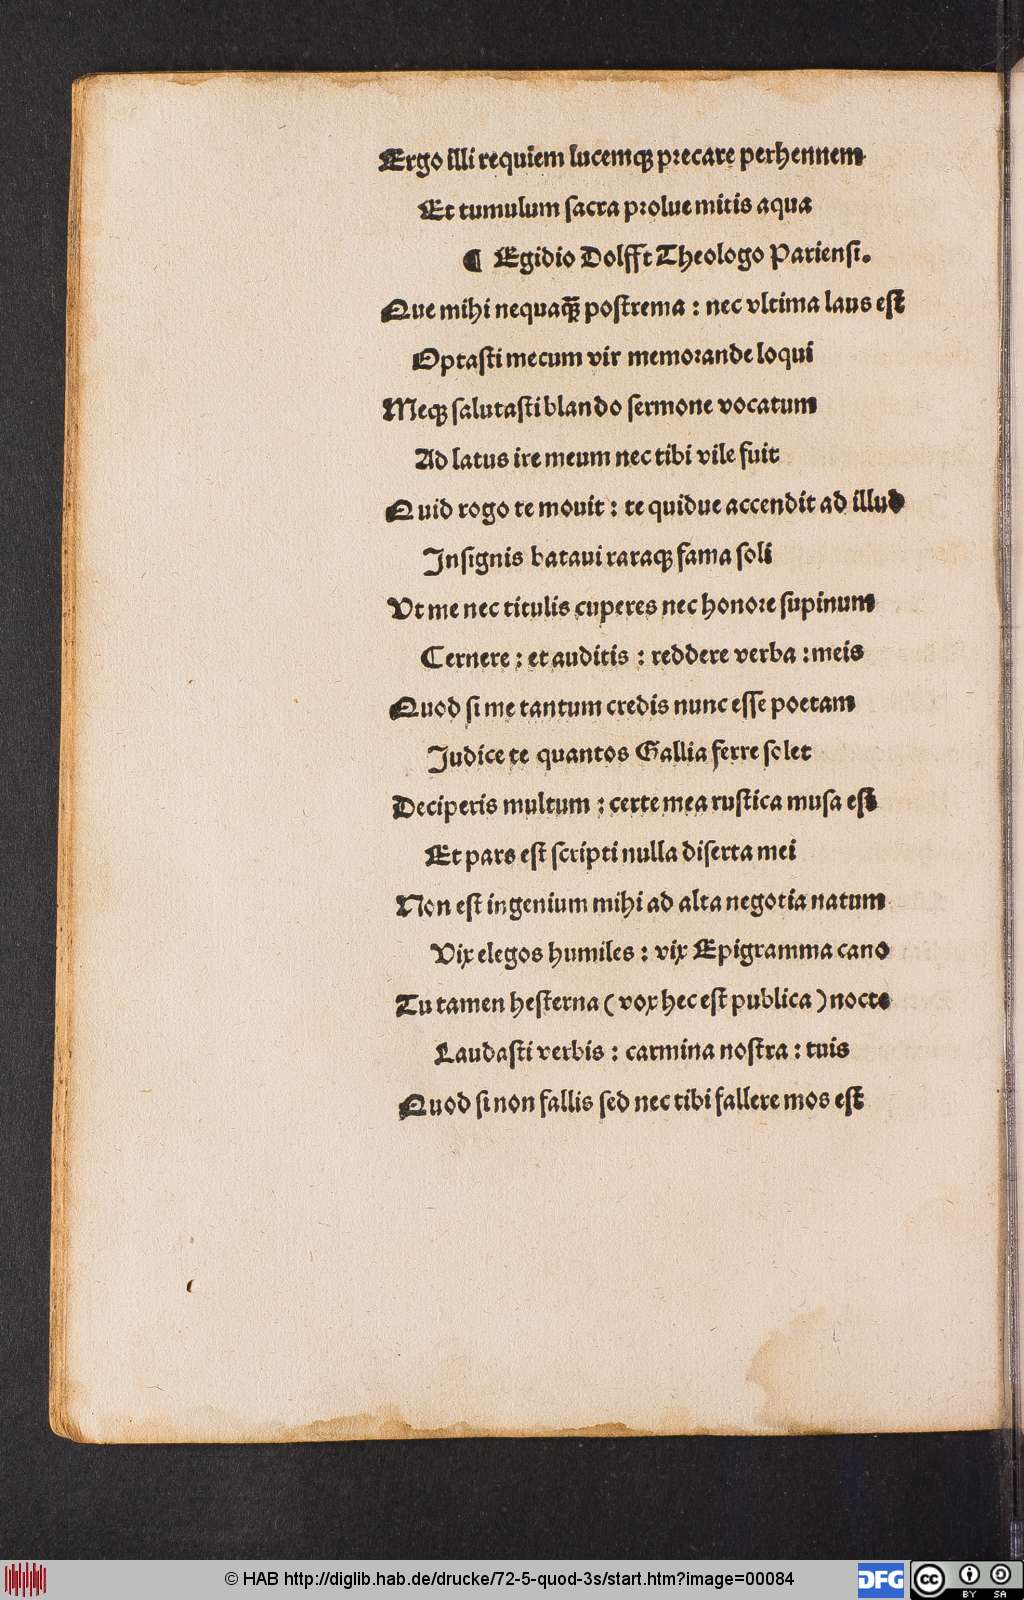 Ergo illi requiem lucemqꝫ precare perhennem
Et tumulum sacra prolue mitis aqua
¶ Egidio Dolfft Theologo Pariensi.
Que mihi nequaqꝫ̃ postrema : nec vltima laus est
Optasti mecum vir memorande loqui
Meqꝫ salutasti blando sermone vocatum
Ad latus ire meum nec tibi vile fuit
Quid rogo te mouit : te quidue accendit ad illud
Insignis bataui raraqꝫ fama soli
Vt me nec titulis cuperes nec honore supinum
Cernere : et auditis : reddere verba : meis
Quod si me tantum credis nunc esse poetam
Iudice te quantos Gallia ferre solet
Deciperis multum : certe mea rustica musa est
Et pars est scripti nulla diserta mei
Non est ingenium mihi ad alta negotia natum
Vix elegos humiles : vix Epigramma cano
Tu tamen hesterna ( vox hec est publica ) nocte
Laudasti verbis : carmina nostra : tuis
Quod si non fallis sed nec tibi fallere mos est
© HAB http://diglib.hab.de/drucke/72-5-quod-3s/start.htm?image=00084
DFG
cc BY SA